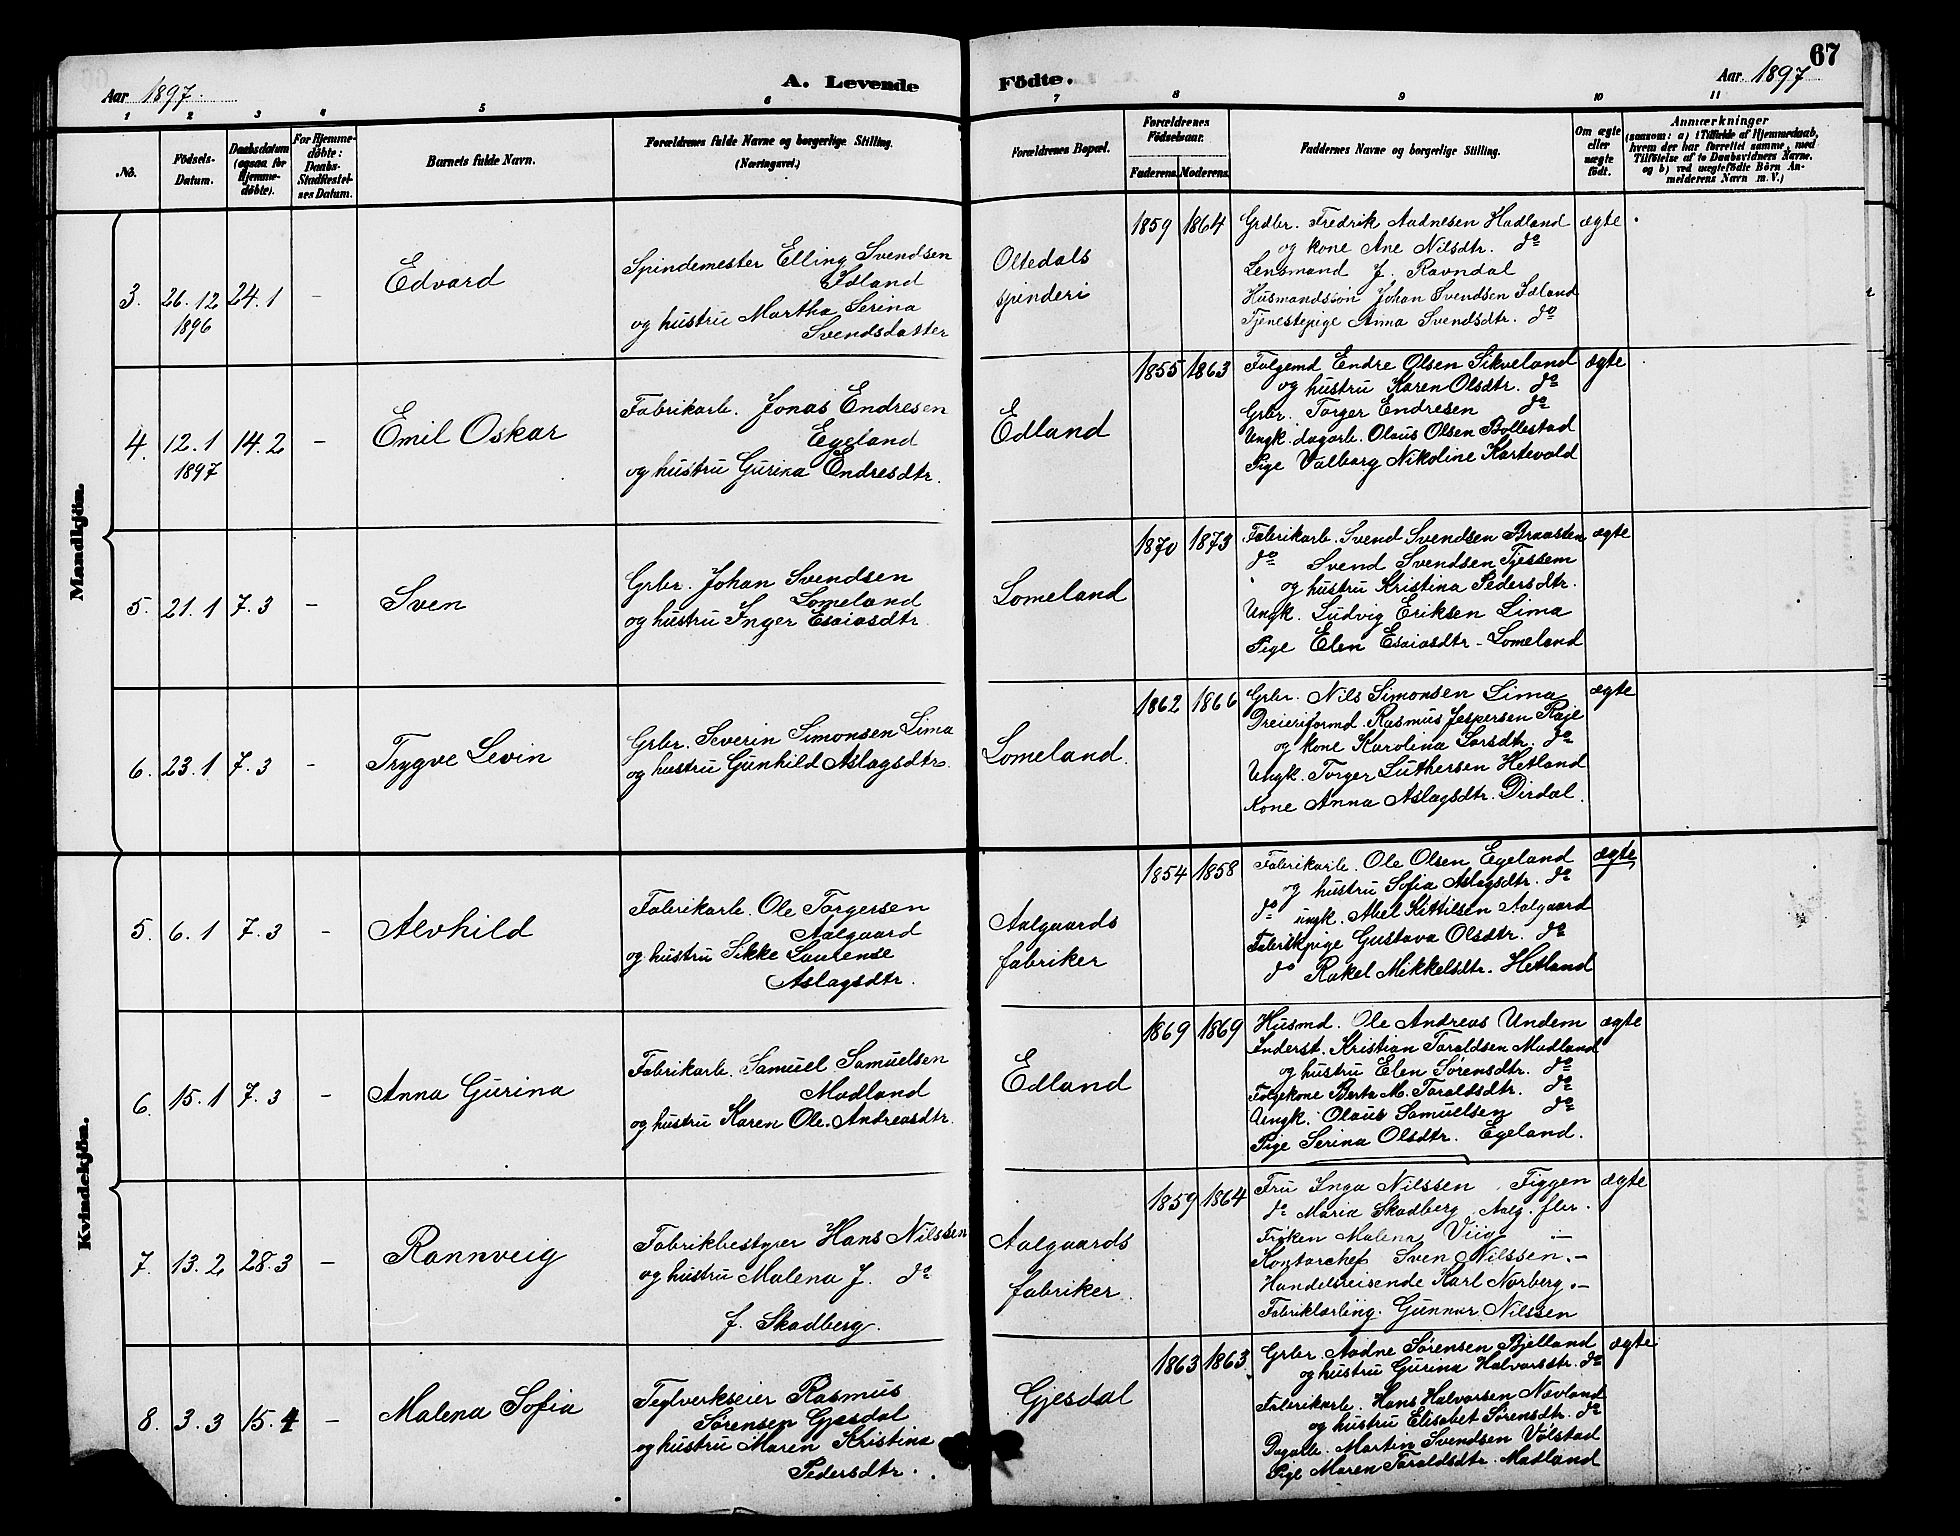 67
Aar 1897.
A. Levende
Födte.
Aar 1897
1 2 3 4 5 6 7 8 9 10 11
No.
Födsels-Datum.
Daabsdatum (ogsaa for Hjemme-döbte).
For Hjemme-döbte: Daabs Stadfæstel-ses Datum.
Barnets fulde Navn.
Forældrenes fulde Navne og borgerlige Stilling. (Næringsvei.)
Forældrenes Bopæl.
Forældrenes Födselsaar.
Faderens. Moderens.
Faddernes Navne og borgerlige Stilling.
Om ægte eller uægte födt.
Anmærkninger
(saasom: a) i Tilfælde af Hjemmedaab, hvem der har forrettet samme, med Tilföielse af to Daabsvidners Navne, og b) ved uægtefödte Börn An-melderens Navn m. V.)
Mandkjön.
3. 26.12 1896 24.1 –
Edvard
Spindemester Elling Svendsen
Idland
og hustru Martha Serina
Svendsdatter
Oltedals
spinderi
1859 1864
Grdbr. Fredrik Aadnesen Hadland
og kone Ane Nilsdtr. do
Lensmand J. Ravndal
Husmandssøn Johan Svendsen Idland
Tjenestepige Anna Svendsdtr. do
ægte
4. 12.1 1897 14.2 –
Emil Oskar
Fabrikarb. Jonas Endresen
Egeland
og hustru Gurina Endresdtr.
Edland
1855 1863
Folgemd Endre Olsen Sikveland
og hustru Karen Olsdtr. do
Grbr. Torger Endresen do
Ungk. dagarb. Olaus Olsen Bollestad
Pige Valborg Nikoline Kartevold
ægte
5. 21.1 7.3 –
Sven
Grbr. Johan Svendsen
Lomeland
og hustru Inger Esaiasdtr.
Lomeland
1870 1873
Fabrikarb. Svend Svendsen Braasten
do Svend Svendsen Tjessem
og hustru Kristina Pedersdtr.
Ungk. Ludvig Eriksen Lima
Pige Elen Esaiasdtr – Lomeland
ægte
6. 23.1 7.3 –
Trygve Levin
Grbr. Severin Simonsen Lima
og hustru Gunhild Aslagsdtr.
Lomeland.
1862 1866
Grbr. Nils Simonsen Lima
Dreieriformd. Rasmus Jespersen Røje
og kone Karolina Larsdtr. do
Ungk. Torger Luthersen Hetland
Kone Anna Aslagsdtr. Dirdal.
ægte
Kvindekjön.
5. 6.1 7.3 –
Alvhild
Fabrikarb. Ole Torgersen
Aalgaard
og hustru Sikke Laurense
Aslagsdtr.
Aalgaards
fabriker
1854 1858
Fabrikarb. Ole Olsen Egeland
og hustru Sofia Aslagsdtr. do
do ungk. Abel Kittilsen Aalgaard
Fabrikpige Gustava Olsdtr. do
do Rakel Mikkelsdtr. Hetland
ægte
6. 15.1 7.3 –
Anna Gurina
Fabrikarb. Samuel Samuelsen
Madland
og hustru Karen Ole-Andreasdtr.
Edland
1869 1869
Husmd. Ole Andreas Undem
Inderst. Kristian Taraldsen Madland
og hustru Elen Sørensdtr. do
Folgekone Berta M. Taraldsdtr. do
Ungk. Olaus Samuelsen do
Pige Serina Olsdtr. Egeland.
ægte
7. 13.2 28.3 –
Rannveig
Fabrikbestyrer Hans Nilssen
og hustru Malena J. do
f. Skadberg.
Aalgaards
fabriker.
1859 1864
Fru Inga Nilssen, Figgen
do Maria Skadberg, Aalg. fbr.
Frøken Malena Viig –
Kontorchef Sven Nilssen. –
Handelsreisende Karl Norberg. –
Fabriklærling. Gunnar Nilssen
ægte
8. 3.3 15.4 –
Malena Sofia
Teglverkseier Rasmus
Sørensen Gjesdal
og hustru Maren Kristina
Pedersdtr.
Gjesdal
1863 1863
Grbr. Aadne Sørensen Bjelland
og hustru Gurina Halvorsdtr. do
Fabrikarb. Hans Halvorsen Nævland
og hustru Elisabet Sørensdtr. do
Dagarb. Martin Svendsen Vølstad
Pige Maren Taraldsdtr. Madland
ægte